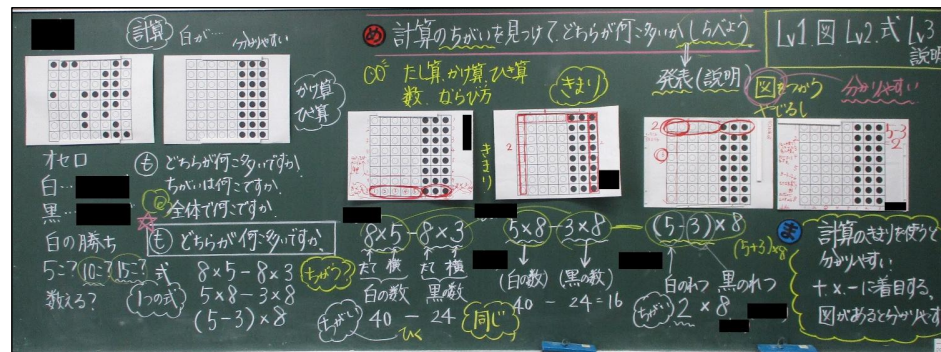 計算
白が…
分かりやすい
かけ算
ひき算
オセロ
白…
黒…
白の勝ち
5=? 10=? 15=?
数える?
も どちらが何こ多いですか
ちがいは何こですか
全体で何こですか
も どちらが何こ多いですか
式
1つの式
8×5-8×3
5×8-3×8
(5-3)×8
め 計算のちがいを見つけて、どちらが何こ多いか しらべよう
たし算、かけ算、ひき算
数、ならび方
きまり
発表(説明)
Lv1.図 Lv2.式 Lv3
説明
図をつかう
やじるし
分かりやすい
きまり
2
2
5-3
2
ちがう?
8×5-8×3
たて 横 たて 横
白の数 黒の数
ちがい
40 - 24
ひく
同じ
5×8-3×8
(白の数) (黒の数)
40 - 24=16
(5-3)×8
(5+3)×8
白のれつ 黒のれつ
ちがい
2×8
ま 計算のきまりを使うと
分かりやすい
+×-に着目する。
図があると分かりやす